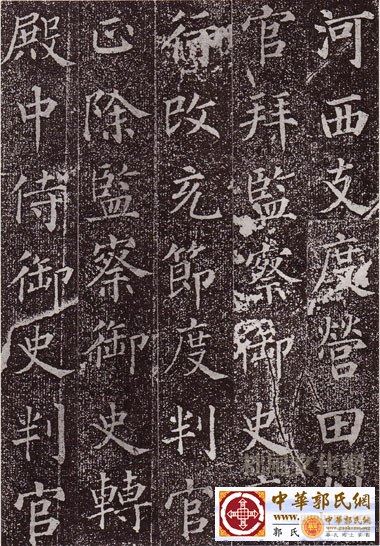 河西支度營田
官拜監察御史
行改充節度判官
正除監察御史轉
殿中侍御史判官
中華郭氏網
www.
郭氏
中華郭氏網